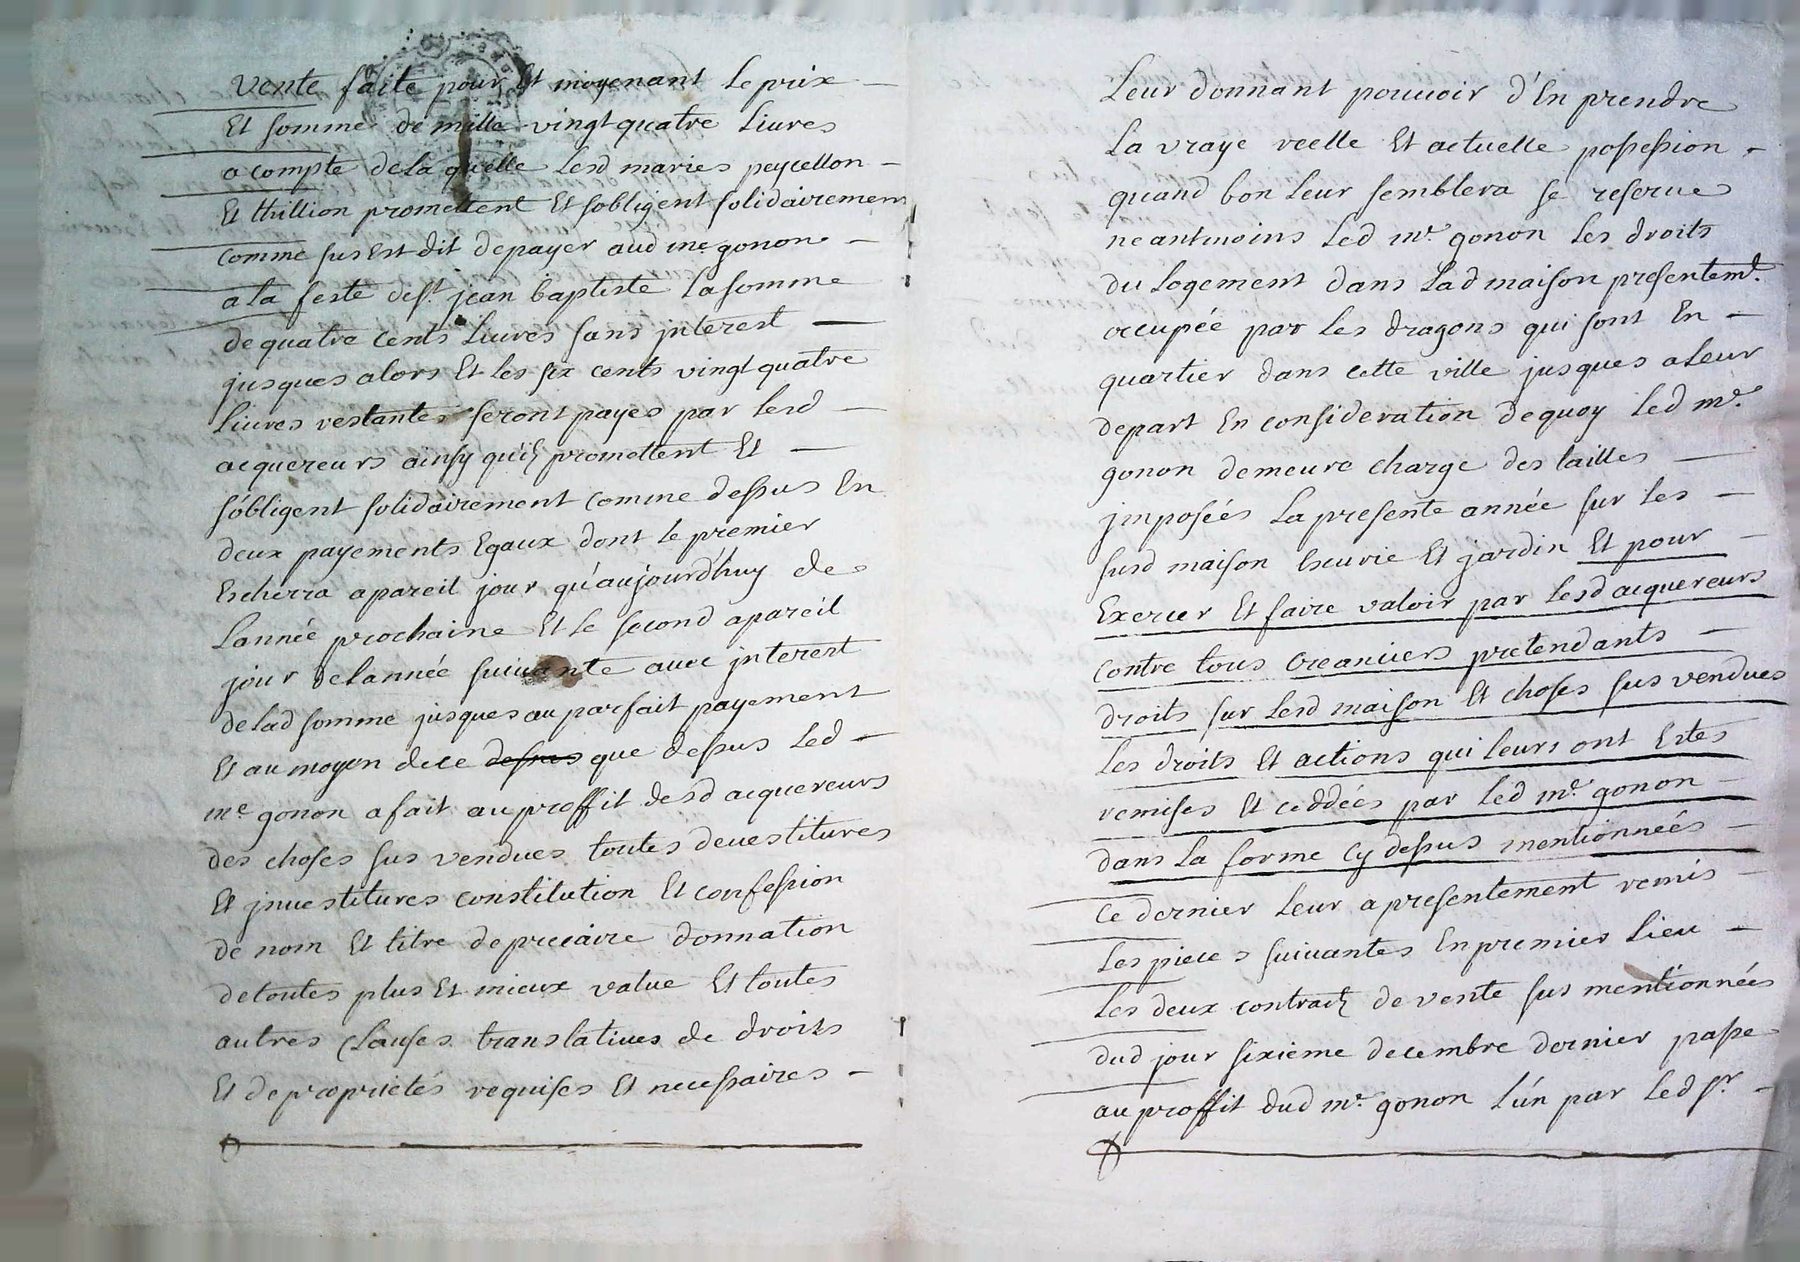 vente faite pour Et moyenant Le prix
Et somme de mille vingt quatre Livres
a compte de la quelle Lesd maries peycellon
Et thillion promettent Et sobligent solidairement
comme sus Est dit de payer aud me. gonon
a la feste de st. jean baptiste La somme
de quatre cents Livres sans jnterest
jusques alors Et Les six cents vingt quatre
Livres restantes seront payes par Lesd
acquereurs ainsy qu'ils promettent Et
s'obligent solidairement comme dessus En
deux payements Egaux dont Le premier
Escherra a pareil jour qu'aujourd'huy de
Lannée prochaine Et Le second a pareil
jour de lannée suivante avec jnterest
de lad somme jusques au parfait payement
Et au moyen de ce dessus que dessus Led
me gonon a fait au proffit desd acquereurs
des choses sus vendues toutes devestitures
Et jnvestitures constitution Et confession
de nom Et titre de precaire donnation
de toutes plus Et mieux value Et toutes
autres clauses translatives de droits
Et de proprietés requises Et necessaires
Leur donnant pouvoir d'En prendre
La vraye reelle Et actuelle possession
quand bon Leur semblera se reserve
neantmoins Led me. gonon Les droits
du Logement dans Lad maison presentemt.
occupée par Les dragons qui sont En
quartier dans cette ville jusques a Leur
depart En consideration de quoy Led me.
gonon demeure charge des tailles
jmposées La presente année sur Les
susd maison Escurie Et jardin Et pour
Exercer Et faire valoir par Lesd acquereurs
contre tous creanciers pretendants
droits sur Lesd maison Et choses sus vendues
Les droits Et actions qui leurs ont Estes
remises Et ceddées par Led me. gonon
dans La forme cy dessus mentionneés
ce dernier Leur a presentement remis
Les pieces suivantes En premier Lieu
Les deux contracts de vente sus mentionnées
dud jour sixieme decembre dernier passe
au proffit dud me. gonon L'ún par Led sr.